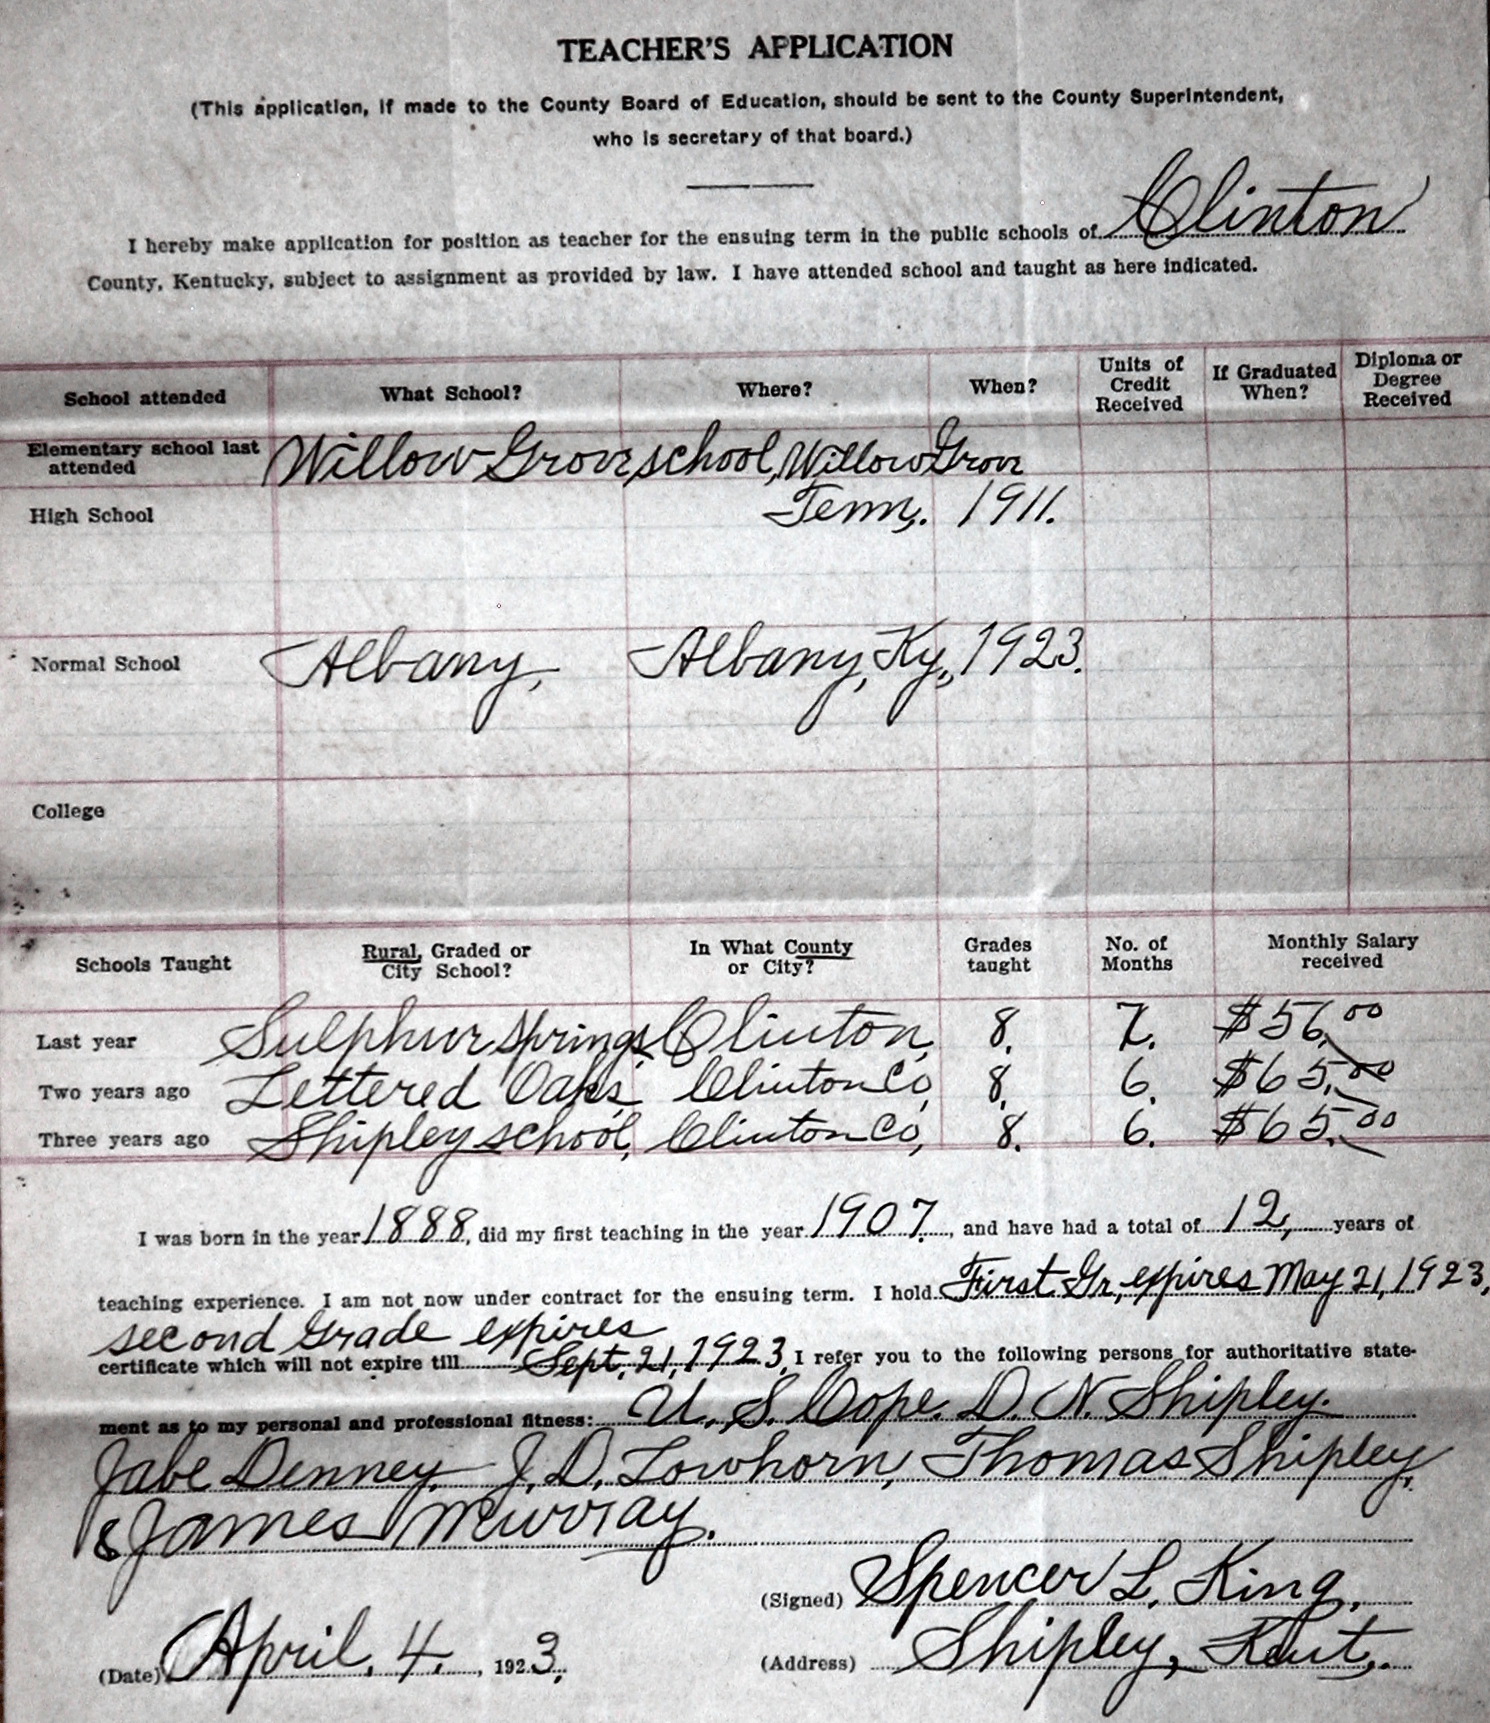 TEACHER'S APPLICATION
(This application, if made to the County Board of Education, should be sent to the County Superintendent,
who is secretary of that board.)
I hereby make application for position as teacher for the ensuing term in the public schools of Clinton
County, Kentucky, subject to assignment as provided by law. I have attended school and taught as here indicated.
School attended What School? Where? When? Units of Credit Received If Graduated When? Diploma or Degree Received
Elementary school last attended Willow Grove school, Willow Grove
High School Tenn,. 1911.
Normal School Albany, Albany, Ky., 1923.
College
Schools Taught Rural, Graded or City School? In What County or City? Grades taught No. of Months Monthly Salary received
Last year Sulphur Springs, Clinton, 8. 7. $56.00
Two years ago Lettered Oaks, Clinton Co, 8, 6. $65.00
Three years ago Shipley school, Clinton Co, 8. 6. $65.00
I was born in the year 1888, did my first teaching in the year 1907, and have had a total of 12, years of
teaching experience. I am not now under contract for the ensuing term. I hold First Gr, expires May 21, 1923,
second Grade expires
certificate which will not expire till Sept, 21, 1923, I refer you to the following persons for authoritative state-
ment as to my personal and professional fitness: U. S. Cope. D. N. Shipley.
Jabe Denney, J. D. Lowhorn, Thomas Shipley,
& James Murray.
(Signed) Spencer L. King,
(Date) April, 4, 1923. (Address) Shipley, Kent,.